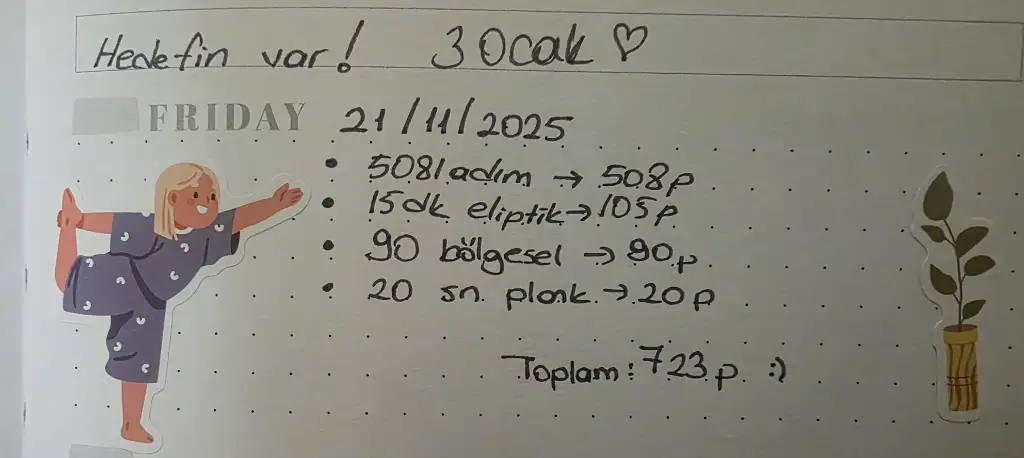 Hedefin var! 3 Ocak ♡
FRIDAY 21/11/2025
• 5081 adım → 508p
• 15 dk eliptik → 105p
• 90 bölgesel → 90p.
• 20 sn. plank. → 20p
Toplam: 723p. :)